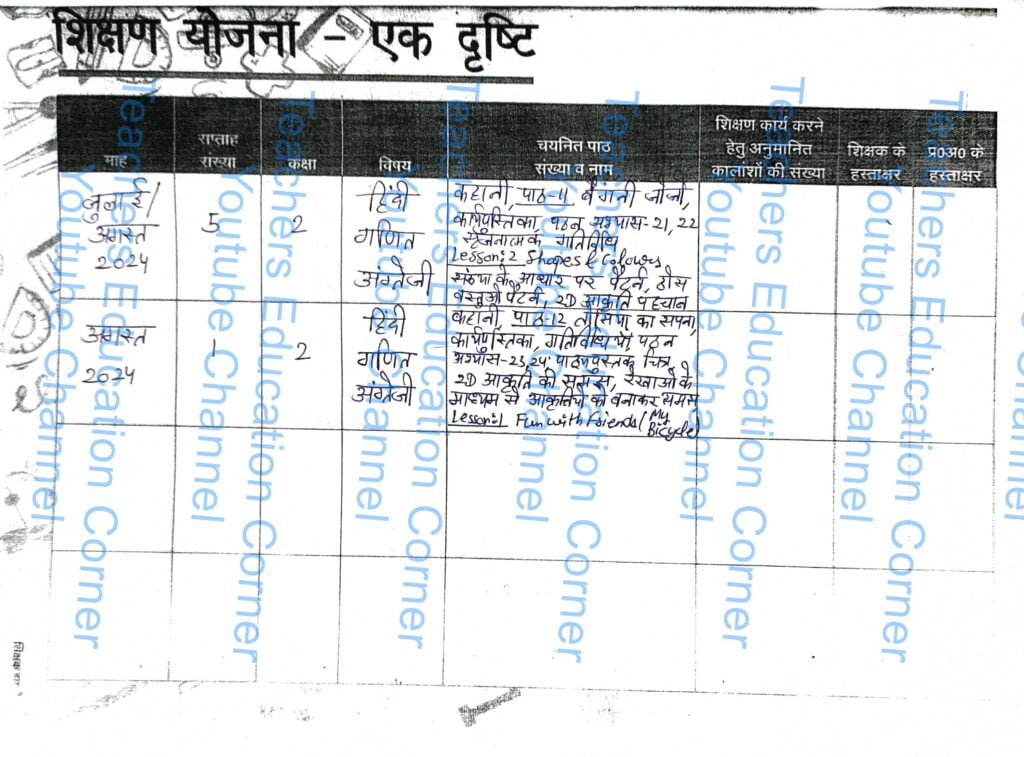 शिक्षण योजना - एक दृष्टि
माह
सप्ताह
संख्या
कक्षा
विषय
चयनित पाठ
संख्या व नाम
शिक्षण कार्य करने
हेतु अनुमानित
कालांशों की संख्या
शिक्षक के
हस्ताक्षर
प्र0अ0 के
हस्ताक्षर
जुलाई/
अगस्त
2024
5
2
हिंदी
गणित
अंग्रेजी
कहानी, पाठ-11 बैंगनी जोजो,
कार्यपुस्तिका, पठन अभ्यास-21, 22
सृजनात्मक गतिविधि
Lesson:2 Shapes & Colours
संख्या के आधार पर पैटर्न, ठोस
वस्तुओं पैटर्न, 2D आकृति पहचान
अगस्त
2024
1
2
हिंदी
गणित
अंग्रेजी
कहानी, पाठ-12 तोसिया का सपना,
कार्यपुस्तिका, गतिविधियाँ पठन
अभ्यास-23,24, पाठ्यपुस्तक चित्र
2D आकृति की समझ, रेखाओं के
माध्यम से आकृतियों को बनाकर
Lesson:1 Fun with Friends (My Bicycle)
Teachers Education Corner
Youtube Channel
Teachers Education Corner
Youtube Channel
Teachers Education Corner
Youtube Channel
Teachers Education Corner
Youtube Channel
Teachers Education Corner
Youtube Channel
Teachers Education Corner
Youtube Channel
Teachers Education Corner
Youtube Channel